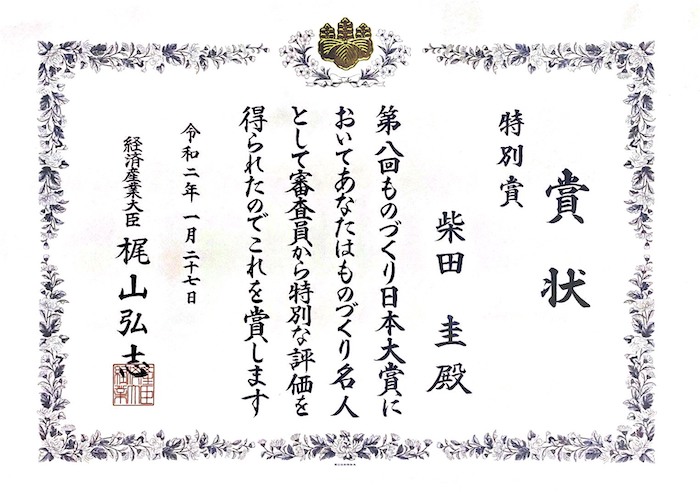 賞状
特別賞
柴田 圭殿
第八回ものづくり日本大賞に
おいてあなたはものづくり名人
として審査員から特別な評価を
得られたのでこれを賞します
令和二年 一月二十七日
経済産業大臣 梶山弘志